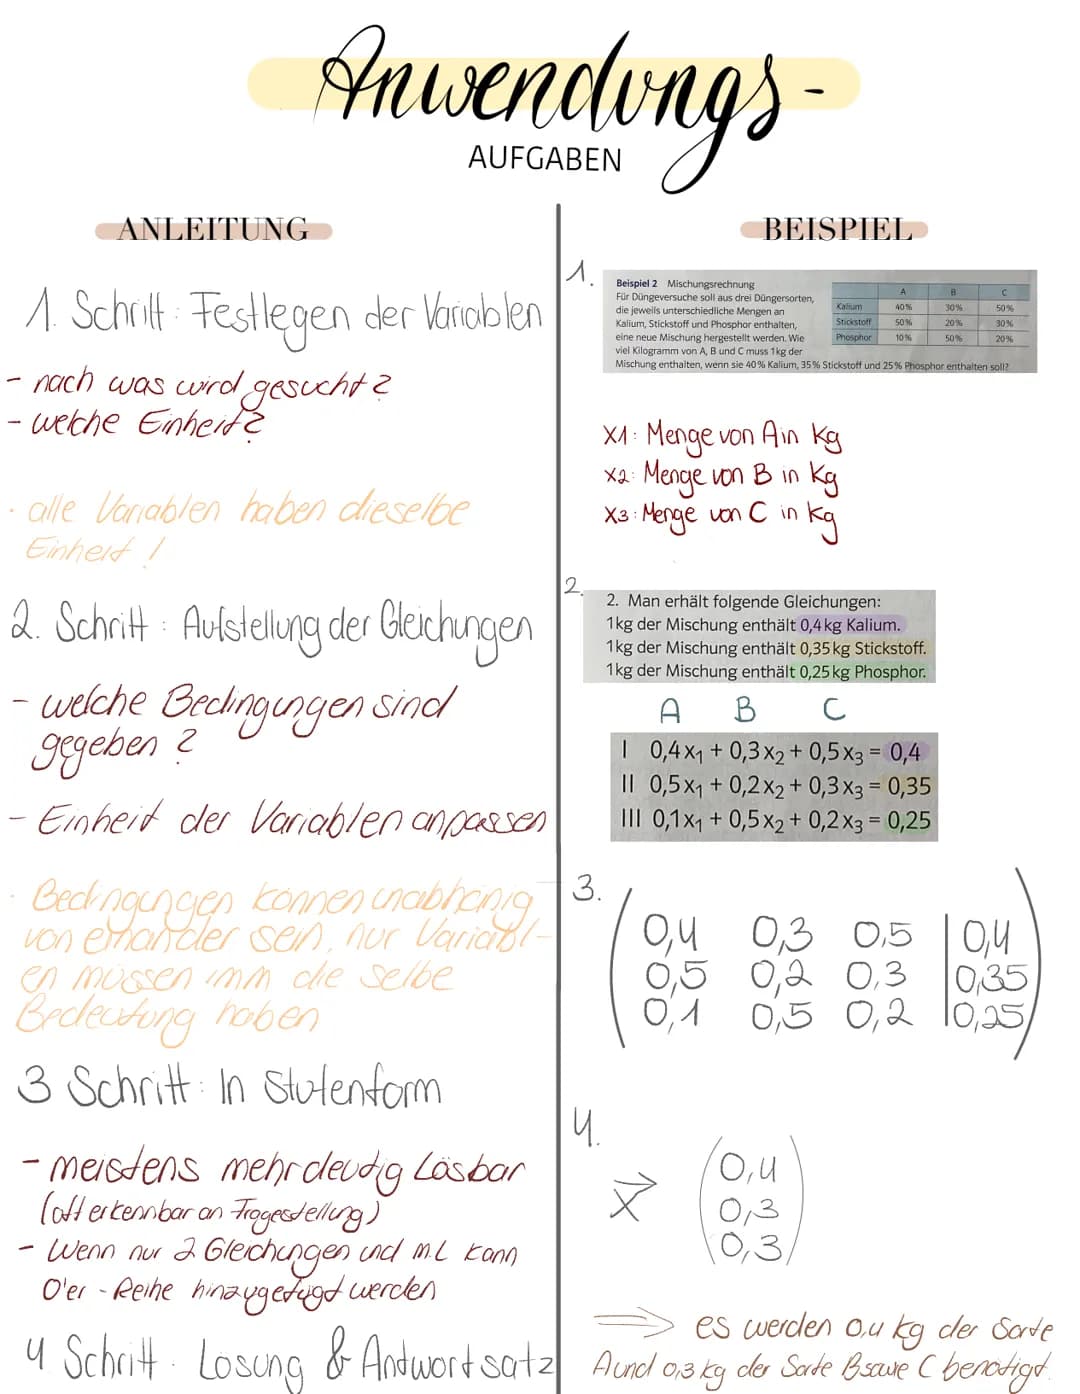 Anwendungs-
AUFGABEN
ANLEITUNG
1. Schritt: Festlegen der Variablen
- nach was wird gesucht?
- welche Einheit?
· alle Variablen haben dieselbe
Einheit!
2. Schritt: Aufstellung der Gleichungen
- welche Bedingungen sind
gegeben?
- Einheit der Variablen anpassen
· Bedingungen können unabhänig
von einander sein, nur Variabl-
en müssen imm die selbe
Bedeutung haben
3 Schritt: In Stufenform
- meistens mehrdeutig Lösbar
(oft erkennbar an Fragestellung)
- Wenn nur 2 Gleichungen und m.L kann
0'er-Reihe hinzugefügt werden
4 Schritt: Lösung & Antwortsatz
BEISPIEL
1.
Beispiel 2 Mischungsrechnung
Für Düngeversuche soll aus drei Düngersorten,
die jeweils unterschiedliche Mengen an
Kalium, Stickstoff und Phosphor enthalten,
eine neue Mischung hergestellt werden. Wie
viel Kilogramm von A, B und C muss 1 kg der
Mischung enthalten, wenn sie 40% Kalium, 35% Stickstoff und 25% Phosphor enthalten soll?
A B C
Kalium 40% 30% 50%
Stickstoff 50% 20% 30%
Phosphor 10% 50% 20%
X1: Menge von A in Kg
X2: Menge von B in Kg
X3: Menge von C in Kg
2.
2. Man erhält folgende Gleichungen:
1kg der Mischung enthält 0,4 kg Kalium.
1kg der Mischung enthält 0,35 kg Stickstoff.
1kg der Mischung enthält 0,25 kg Phosphor.
A B C
I 0,4x₁ + 0,3x₂ + 0,5x₃ = 0,4
II 0,5x₁ + 0,2x₂ + 0,3x₃ = 0,35
III 0,1x₁ + 0,5x₂ + 0,2x₃ = 0,25
3.
0,4 0,3 0,5 | 0,4
0,5 0,2 0,3 | 0,35
0,1 0,5 0,2 | 0,25
4.
x⃗ (0,4
0,3
0,3)
⇒ es werden 0,4 kg der Sorte
A und 0,3 kg der Sorte B sowie C benötigt.